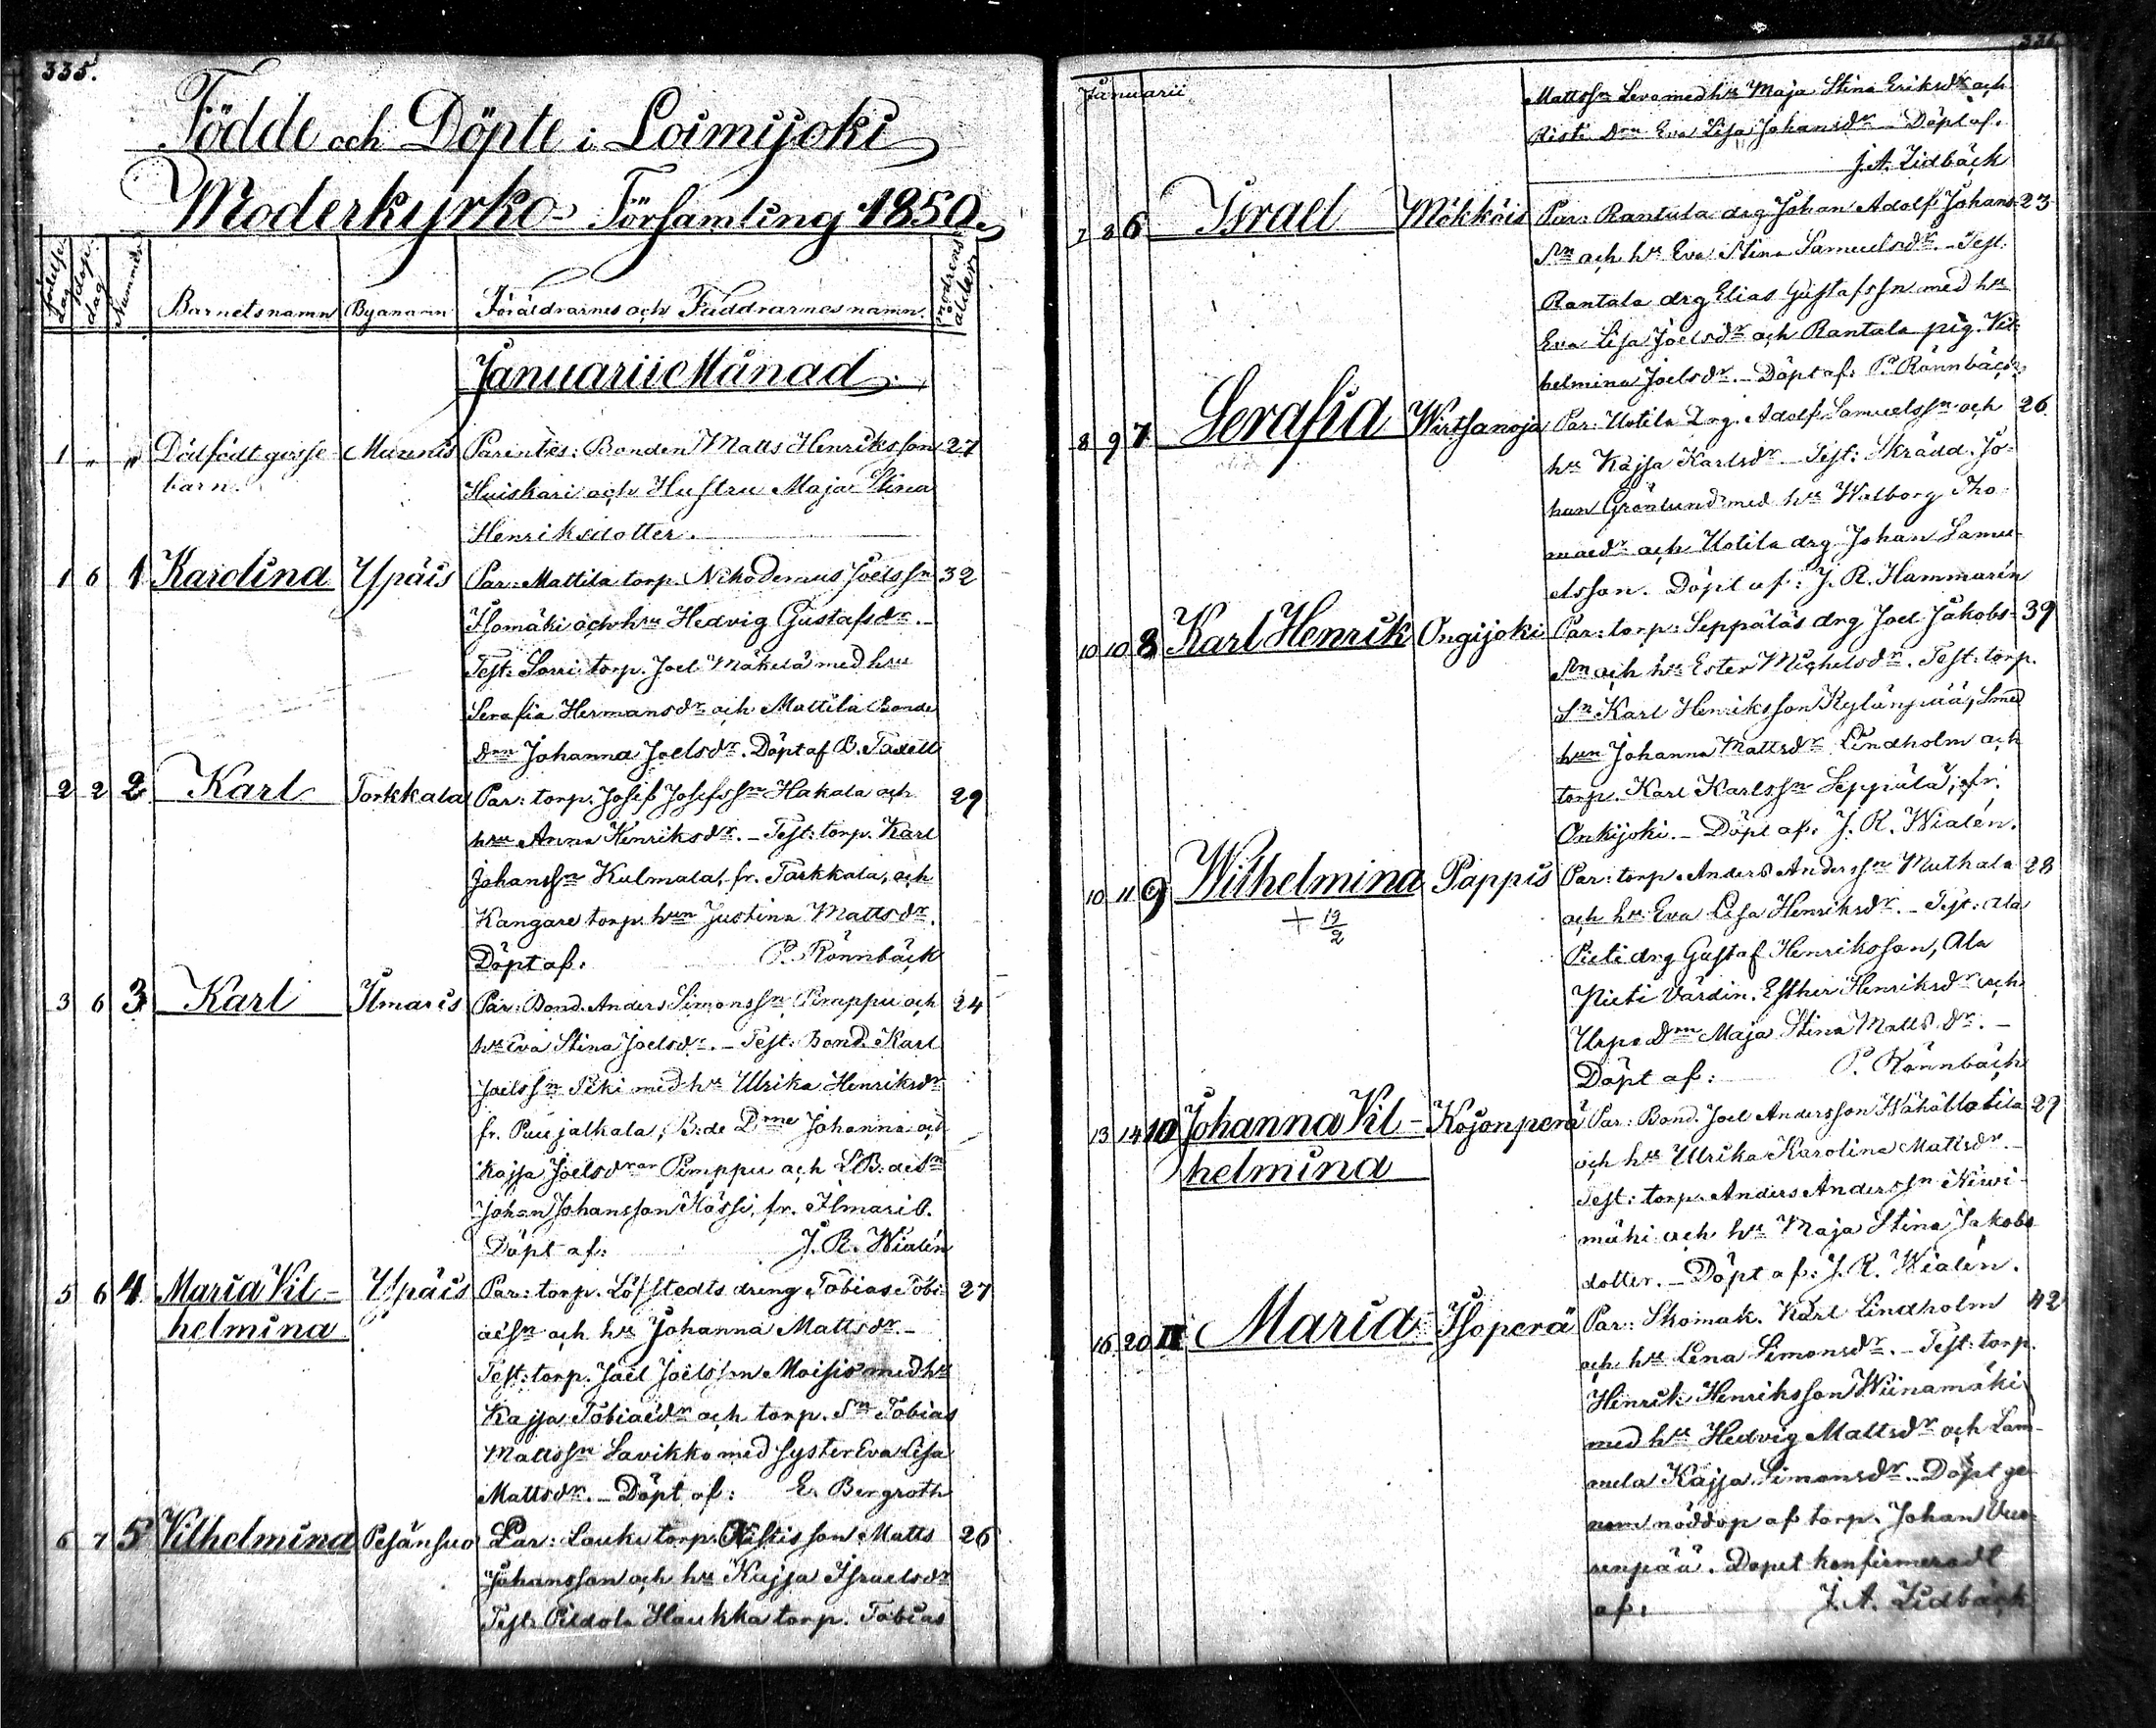 335.
Födde och Döpte i Loimijoki
Moderkyrko- Församling 1850.
Födelse dag
dop dag
Nummer
Barnets namn
Byanamn
Föräldrarnes och Faddrarnes namn.
modrens ålder
Januarii Månad.
1 " " Dödfödt gosse- Parentes: Bonden Matts Henriksson 27
barn. Huiskari och Hustru Maja Stina
Henriksdotter.
1 6 1 Karolina Ypäis Par: Mattila torp. Nikodemus Joelssn 32
Isomäki och hru Hedvig Gustafsdr. -
Test: Sorri torp. Joel Mäkelä med hru
Serafia Hermansdr och Mattila Bonde
drn Johanna Joelsdr. Döpt af B. Taxell
2 2 2 Karl Torkkala Par: torp. Josef Josefssn Hakala och 29
hru Anna Henriksdr. - Test: torp. Karl
Johanssn Kulmala, fr. Torkkala, och
Kangare torp. hrun Justina Mattsdr.
Döpt af: P. Rönnbäck
3 6 3 Karl Ilmaris Par: Bond. Anders Simonssn Pimppu och 24
hru Eva Stina Joelsdr. - Test: Bond. Karl
Joelssn Peki med hru Ulrika Henriksdr
fr. Puujalkala, B:de Drne Johanna och
Kajsa Joelsdrar Pimppu och
Johan Johansson Hässi, fr. Ilmaris.
Döpt af: J. R. Wialén
5 6 4 Maria Vil- Ypäis Par: torp. Löfstedts dreng Tobias Tobi- 27
helmina aesn och hru Johanna Mattsdr. -
Test: torp. Joel Joelssn Moisio med hru
Kajsa Tobiaedr och torp. Sn Tobias
Mattssn Lavikko med syster Eva Lisa
Mattsdr. - Döpt af: E. Bergroth
6 7 5 Vilhelmina Pesänsuo Par: Louku torp. Matts 26
Johansson och hru Kajsa Israelsdr
Test: Haukka torp. Tobias
336
Januarii
Mattssn Levo med hru Maja Stina Eriksdr och
Risti drn Eva Lisa Johansdr - Döpt af.
J. A. Lidbäck
7 8 6 Israel Mökkäis Par: Rantala drg Johan Adolf Johans- 23
sn och hru Eva Stina Samuelsdr. - Test:
Rantala drg Elias Gustafssn med hru
Eva Lisa Joelsdr och Rantala pig. Vil-
helmina Joelsdr. - Döpt af: P. Rönnbäck
8 9 7 Serafia Wirtsanoja Par: Uotila Drg. Adolf Samuelssn och 26
hru Kajsa Karlsdr. - Test: Skrädd. Jo-
han Grönlund med hru Walborg Tho-
maedr och Uotila drg Johan Samu-
elsson. Döpt af: J. R. Hammarén
10 10 8 Karl Henrik Ongijoki Par: torp: Seppäläs drg Joel Jakobs- 39
sn och hru Ester Michelsdr. Test: torp.
Sn Karl Henriksson Kylänpää, Smed
hun Johanna Mattsdr Lindholm och
torp. Karl Karlssn Seppälä, fr.
Onkijoki. - Döpt af: J. R. Wialén.
10 11 9 Wilhelmina Pappis Par: torp. Anders Anderssn Muthala 28
+ 19/2 och hru Eva Lisa Henriksdr. - Test: Ala
Pieti drg Gustaf Henriksson, Ala
Pieti Värdin. Esther Henriksdr och
Urpo drn Maja Stina Mattsdr. -
Döpt af: P. Rönnbäck
13 14 10 Johanna Vil- Kojonperä Par: Bond. Joel Andersson Wähällotila 29
helmina och hru Ulrika Karolina Mattsdr. -
Test: torp. Anders Anderssn Kiwi-
mäki och hru Maja Stina Jakobs
dotter. - Döpt af: J. R. Wialén.
16 20 11 Maria Isoperä Par: Skomak. Karl Lindholm 42
och hru Lena Simonsdr. - Test: torp.
Henrik Henriksson Wiinamäki
med hru Hedvig Mattsdr och Lam-
mela Kajsa Simonsdr. - Döpt ge-
nom nöddop af torp. Johan Vuo-
renpää. Dopet konfirmeradt
af: J. A. Lidbäck